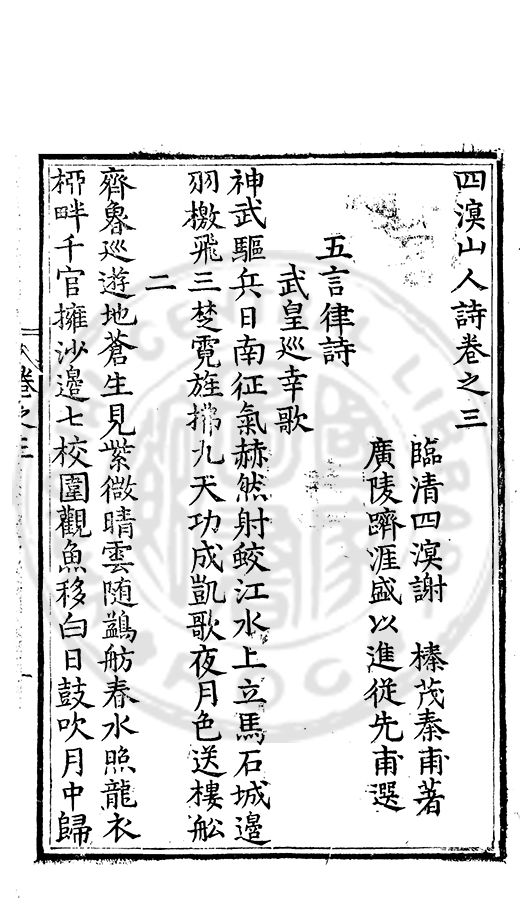 四溟山人詩卷之三
臨清四溟謝 榛茂秦甫著
廣陵躋涯盛以進從先甫選
五言律詩
武皇巡幸歌
神武驅兵日南征氣赫然射蛟江水上立馬石城邊
羽檄飛三楚霓旌拂九天功成凱歌夜月色送樓船
二
齊魯巡遊地蒼生見紫微晴雲随鷁舫春水照龍衣
桺畔千官擁沙邊七校圍觀魚移白日鼓吹月中歸
卷之三